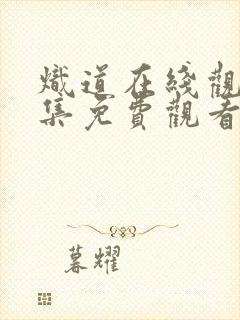 熾道在綫觀
集免費觀看
暮耀